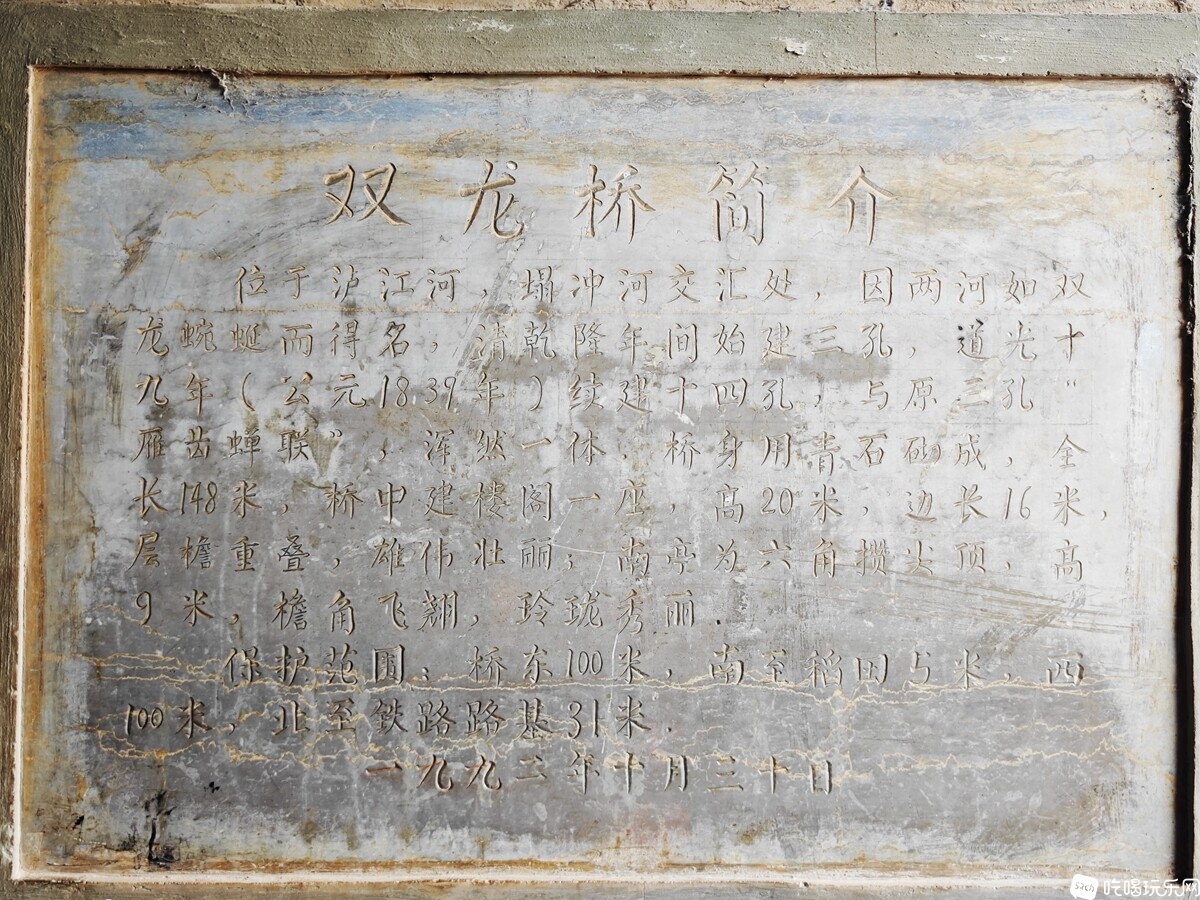 双龙桥简介
位于泸江河，塌冲河交汇处，因两河如双
龙蜿蜒而得名，清乾隆年间始建三孔，道光十
九年（公元1839年）续建十四孔，与原三孔“
雁齿蝉联”，浑然一体．桥身用青石砌成，全
长148米，桥中建楼阁一座，高20米，边长16米，
层檐重叠，雄伟壮丽；南亭为六角攒尖顶，高
9米，檐角飞翘，玲珑秀丽．
保护范围：桥东100米，南至稻田5米，西
100米，北至铁路路基31米．
一九九二年十月三十日
sach 吃喝玩乐网